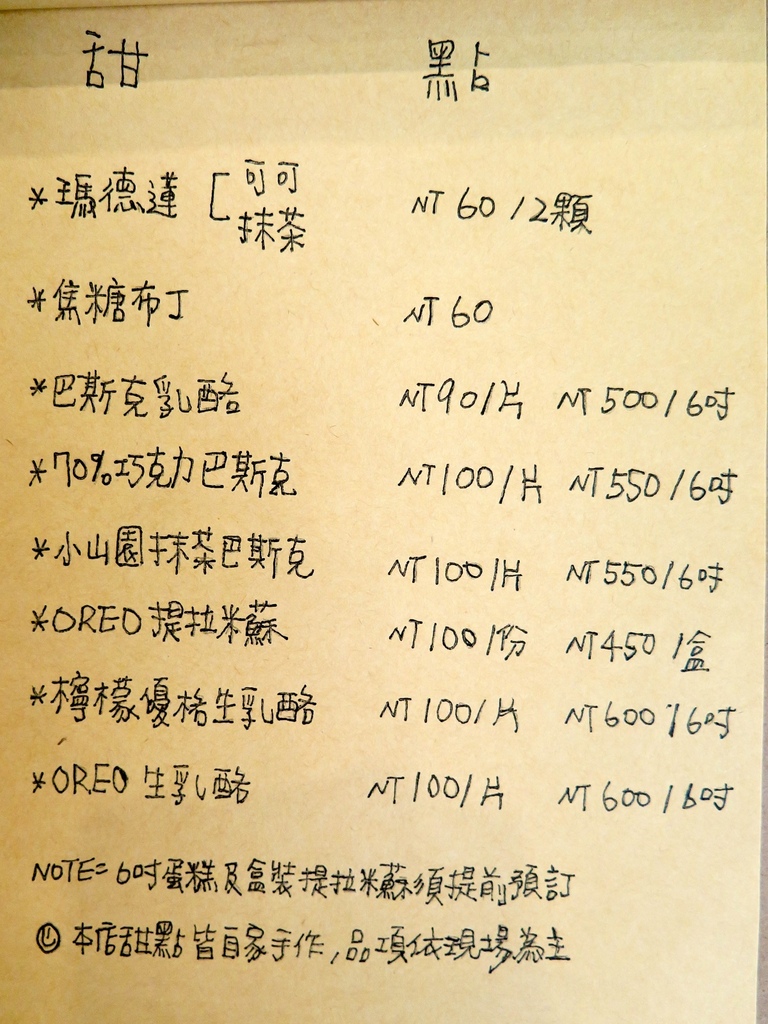 甜 點
*瑪德蓮 [可可 NT 60 /2顆
抹茶
*焦糖布丁 NT 60
*巴斯克乳酪 NT90/片 NT 500/6吋
*70%巧克力巴斯克 NT100/片 NT550/6吋
*小山園抹茶巴斯克 NT100/片 NT550/6吋
*OREO 提拉米蘇 NT100/份 NT450/盒
*檸檬優格生乳酪 NT100/片 NT600/6吋
*OREO 生乳酪 NT100/片 NT600/6吋
NOTE= 6吋蛋糕及盒裝提拉米蘇須提前預訂
本店甜點皆自家手作,品項依現場為主